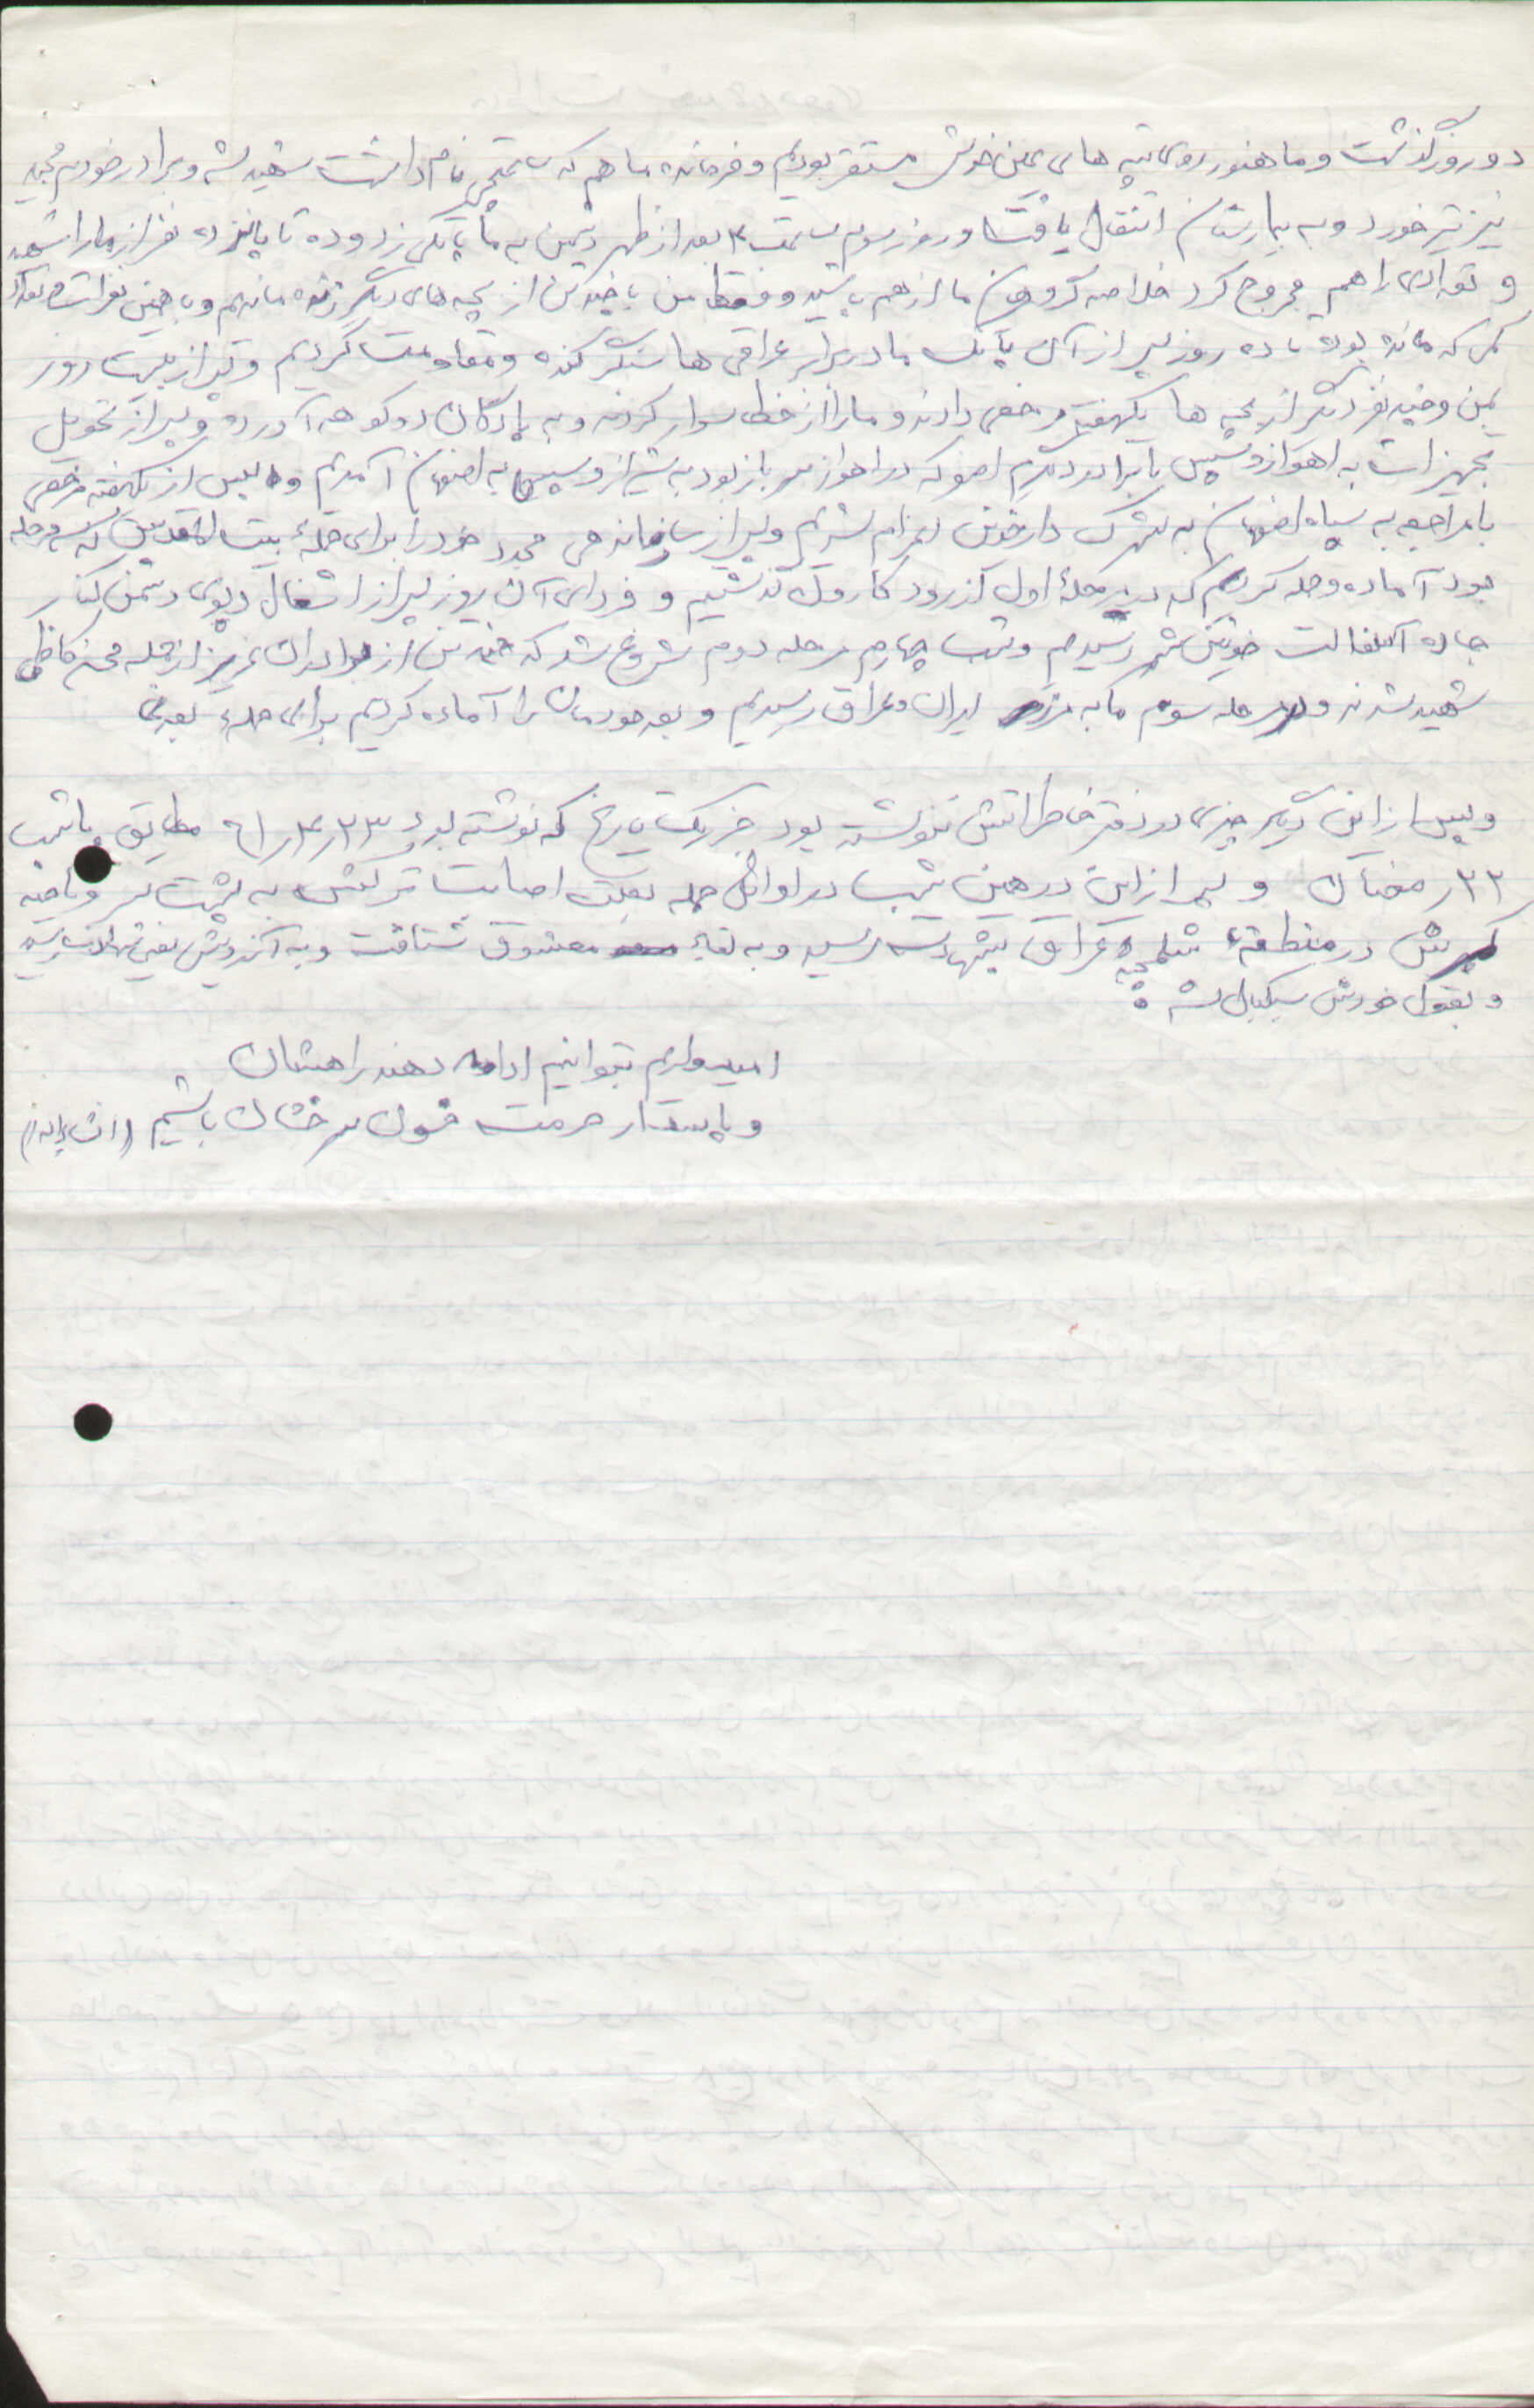 دو روز گذشت و ما هنوز روی تپه های عین خوش مستقر بودیم و فرمانده ما هم که نام داشت شهید شد و برادر خودم مجید
نیز تیر خورد و به بیمارستان انتقال یافت و روز سوم ساعت ۳ بعد از ظهر دشمن به ما پاتکی زد و ده تا پانزده نفر از ما را شهید
و تعدادی را هم مجروح کرد خلاصه گروهان ما از هم پاشید و فقط من با چند تن از بچه های دیگر زنده ماندیم و با همین نفرات و تعداد
کمی که مانده بود تا ده روز پس از آن پاتک ما در برابر عراقی ها سنگر کنده و مقاومت کردیم و پس از بیست روز
بمن و چند نفر دیگر از بچه ها یکهفته مرخصی دادند و ما را از خط سوار کردند و به پادگان دوکوهه آورده و پس از تحویل
تجهیزات به اهواز و سپس با برادر دیگرم اصغر که در اهواز سرباز بود به شیراز و سپس به اصفهان آمدیم و پس از یکهفته مرخصی
با مراجعه به سپاه اصفهان به شهرک دارخوین اعزام شدیم و پس از سازماندهی مجدد خود را برای حملهٔ بیت المقدس که سه مرحله
بود آماده و حمله کردیم که در مرحلهٔ اول از رود کارون گذشتیم و فردای آن روز پس از اشغال دپوی دشمن کنار
جاده آسفالت خونین شهر رسیدیم و شب چهارم مرحله دوم شروع شد که چند تن از برادران عزیز از جمله محسن کاظمی
شهید شدند و در مرحله سوم ما به مرز ایران و عراق رسیدیم و بعد خودمان را آماده کردیم برای حملهٔ بعدی
و پس از این دیگر چیزی در دفتر خاطراتش ننوشته بود جز یک تاریخ که نوشته بود ۶۱/۴/۲۳ مطابق با شب
۲۳ رمضان و پس از این در همین شب در اوائل حمله بعلت اصابت ترکش به پشت سر و ناحیه
کمرش در منطقهٔ شلمچه عراق بشهادت رسید و به لقاء معشوق شتافت و به آرزویش یعنی شهادت رسید
و بقول خودش سبکبال شد
امیدواریم بتوانیم ادامه دهنده راهشان
و پاسدار حرمت خون سرخشان باشیم (انشاءاله)